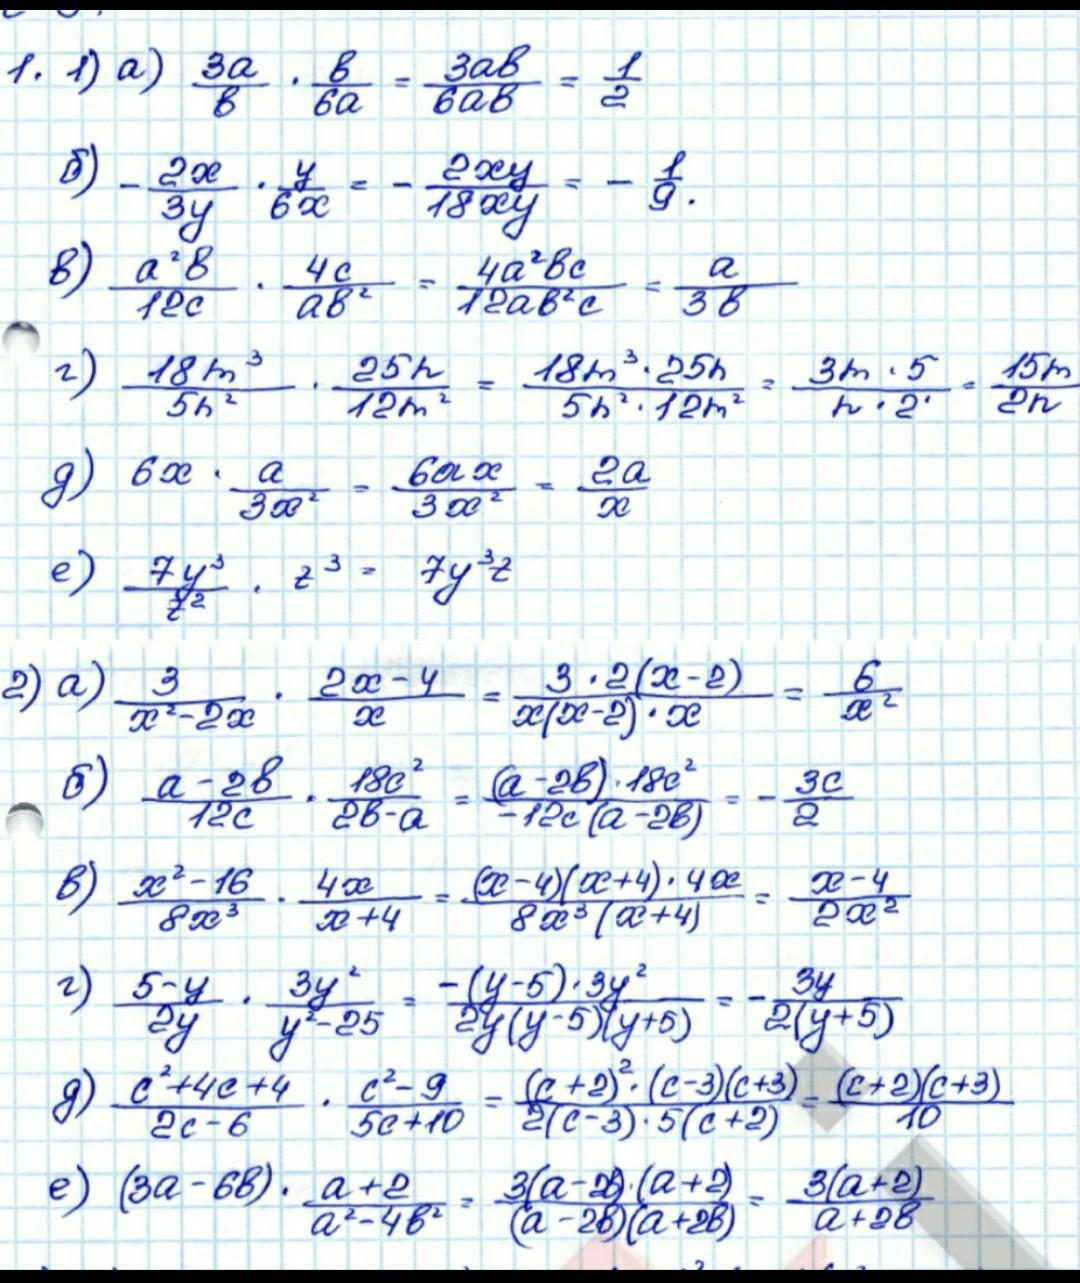 1. 1) а) 3a/b · b/6a = 3ab/6ab = 1/2
б) - 2x/3y · y/6x = - 2xy/18xy = - 1/9.
в) a²b/12c · 4c/ab² = 4a²bc/12ab²c = a/3b
г) 18m³/5n² · 25n/12m² = 18m³·25n/5n²·12m² = 3m·5/n·2 = 15m/2n
д) 6x · a/3x² = 6ax/3x² = 2a/x
е) 7y³/z² · z³ = 7y³z
2) а) 3/x²-2x · 2x-4/x = 3·2(x-2)/x(x-2)·x = 6/x²
б) a-2b/12c · 18c²/2b-a = (a-2b)·18c²/-12c(a-2b) = - 3c/2
в) x²-16/8x³ · 4x/x+4 = (x-4)(x+4)·4x/8x³(x+4) = x-4/2x²
г) 5-y/2y · 3y²/y²-25 = -(y-5)·3y²/2y(y-5)(y+5) = - 3y/2(y+5)
д) c²+4c+4/2c-6 · c²-9/5c+10 = (c+2)²·(c-3)(c+3)/2(c-3)·5(c+2) = (c+2)(c+3)/10
е) (3a-6b) · a+2/a²-4b² = 3(a-2b)·(a+2)/(a-2b)(a+2b) = 3(a+2)/a+2b